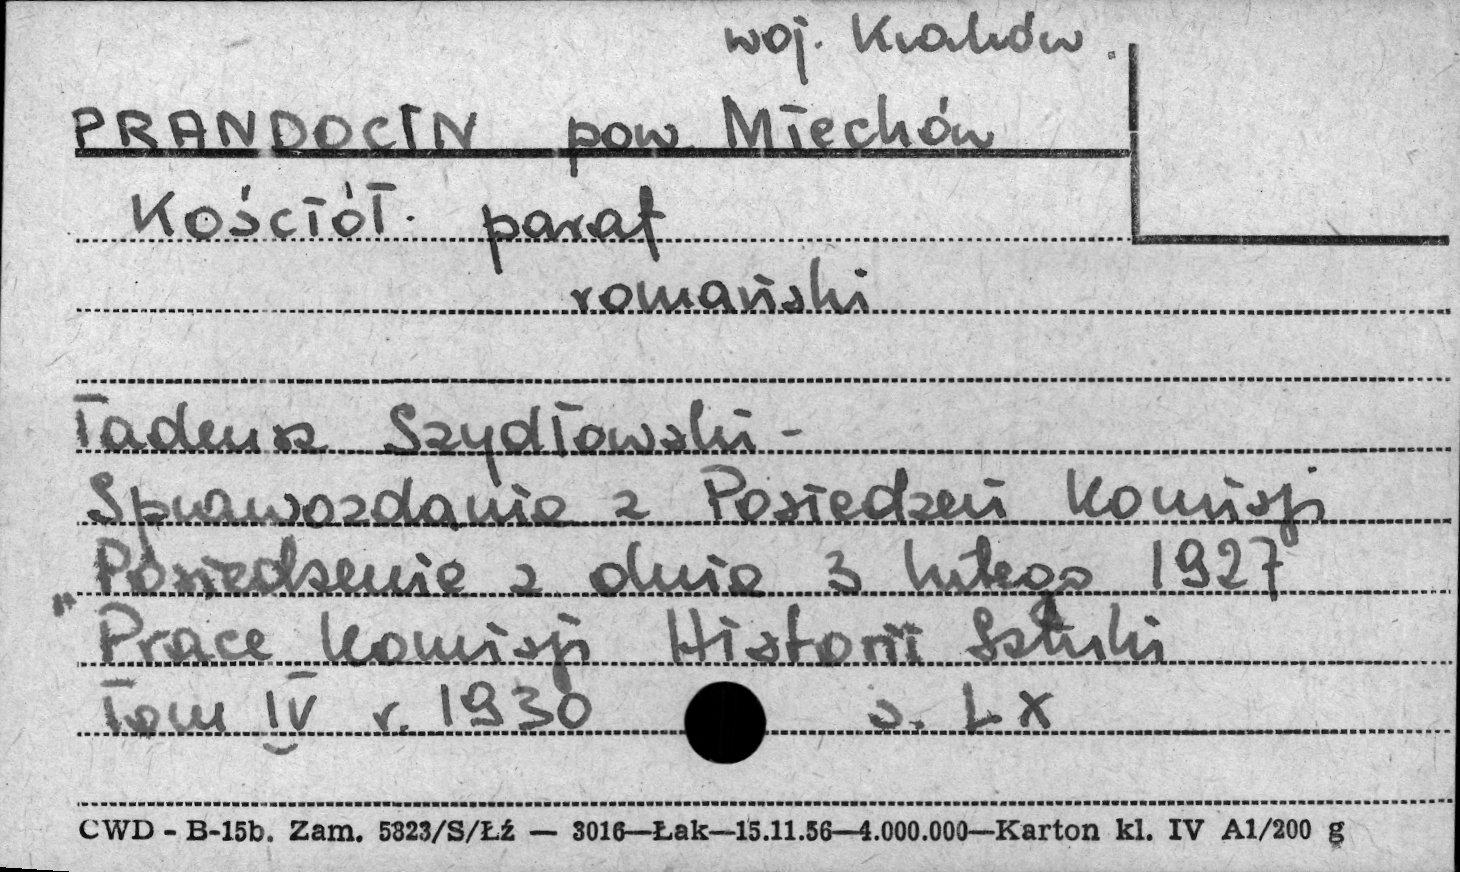 woj. Kraków.
PRANDOCIN pow. Miechów
Kościół paraf
romański
Tadeusz Szydłowski -
Sprawozdanie z Posiedzeń Komisji
Posiedzenie z dnia 3 lutego 1927
"Prace Komisji Historii Sztuki
Tom IV r. 1930 s. LX
CWD - B-15b. Zam. 5823/S/Łź — 3016—Łak—15.11.56—4.000.000—Karton kl. IV A1/200 g